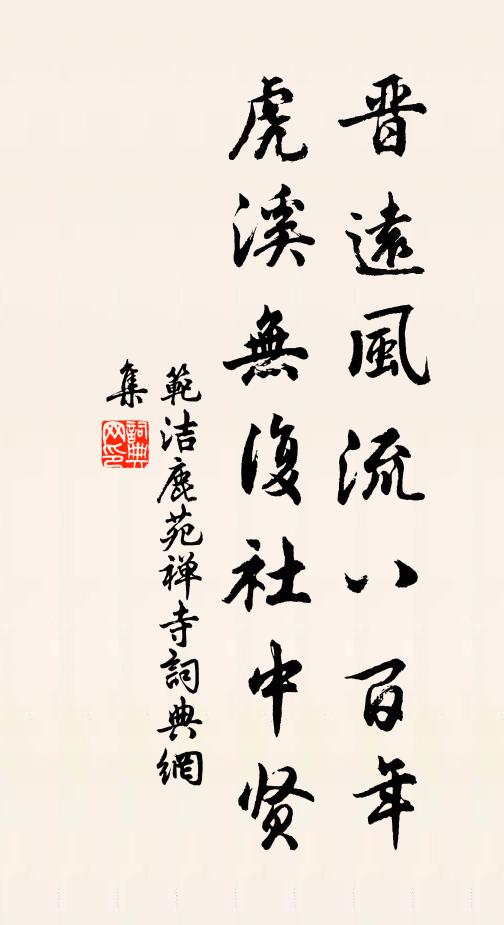 晋遠風流八百年
虎溪無復社中贤
範洁鹿苑禅寺詞典網
集
詞典网印